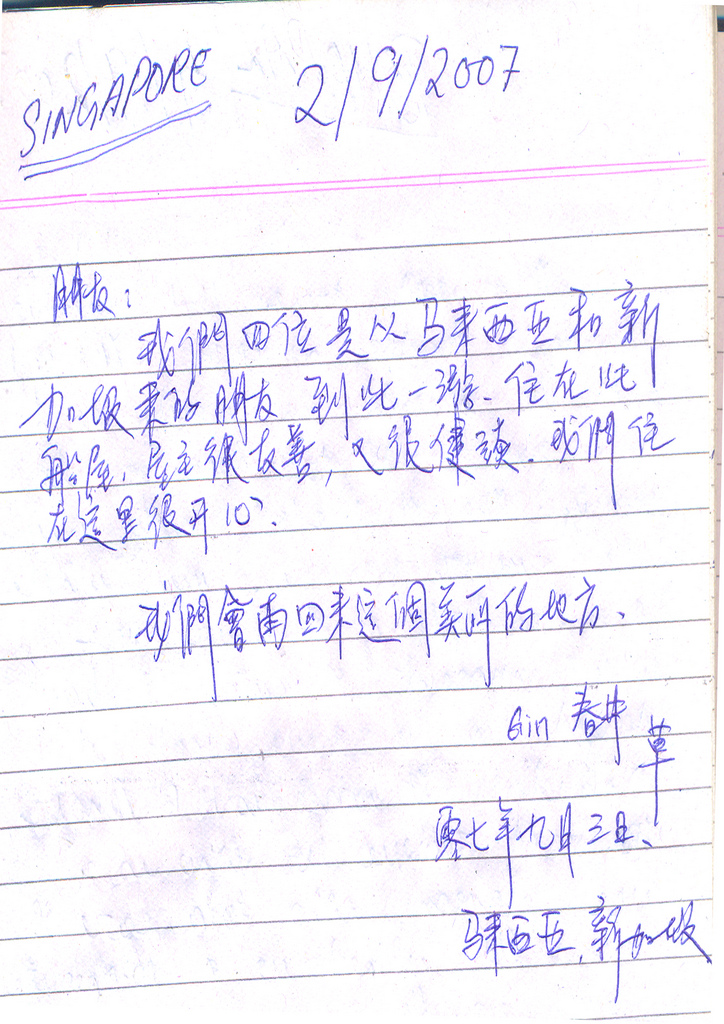 SINGAPORE 2/9/2007
朋友：
我們四位是从马来西亚和新
加坡来的朋友 到此一游、住在此
船屋，屋主很友善，又很健谈．我們住
在这里很开心．
我們會再回来这個美丽的地方、
Gin 春
草
零七年九月三日、
马来西亚，新加坡